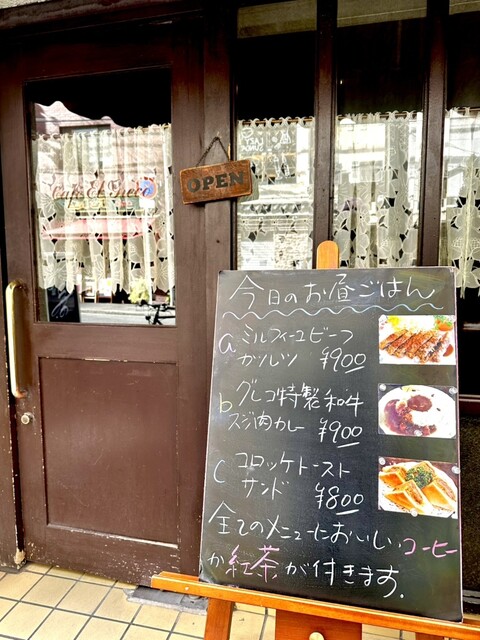 Cafe El Greco
OPEN
今日のお昼ごはん
a ミルフィーユビーフ
カツレツ ¥900
b グレコ特製和牛
スジ肉カレー ¥900
c コロッケトースト
サンド ¥800
全てのメニューにおいしいコーヒー
か紅茶が付きます.